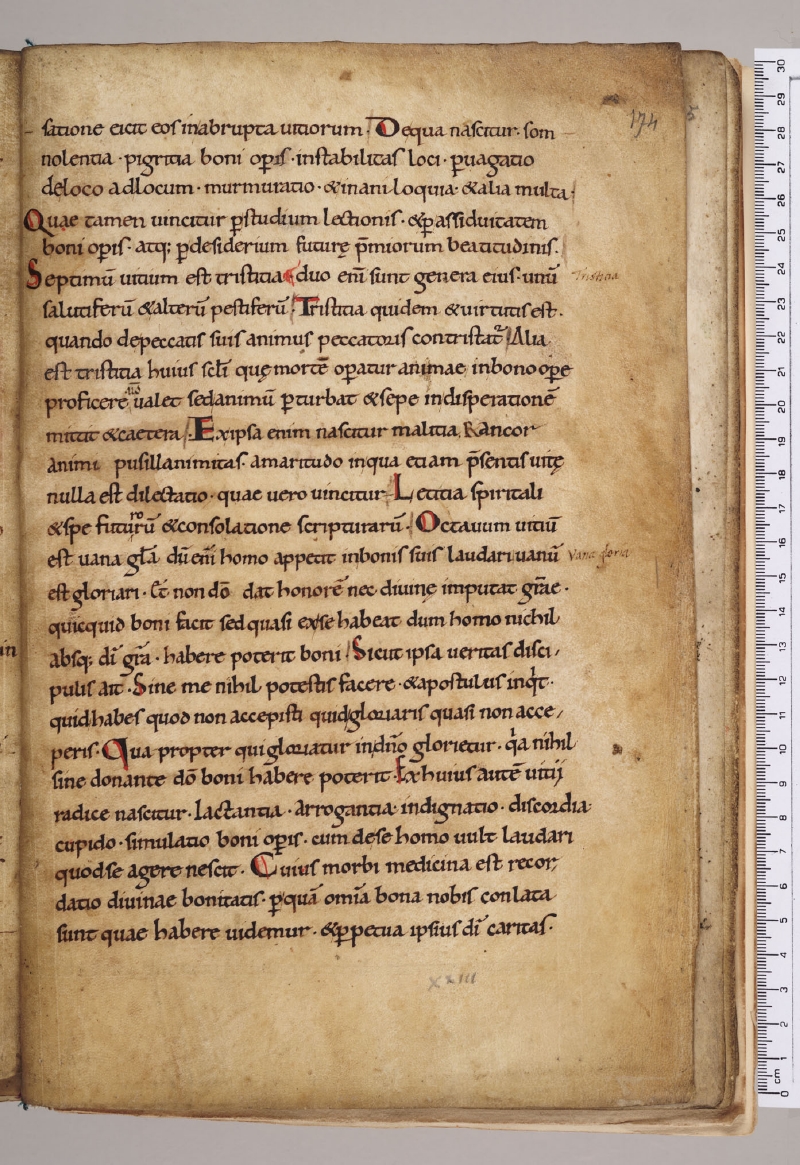 174
satione eicit eos inabrupta uitiorum. Dequa nascitur. som
nolentia. pigritia boni op̄is. instabilitas loci. p̱uagatio
deloco adlocum. murmuratio. &inani loquia. &alia multa.
Quae tamen uincitur p̱studium lectionis. &p̱assiduitatem
boni op̄is. atq; p̱desiderium futurę p̄miorum beatitudinis.
Septimū uitium est tristitia. duo eni̅ sunt genera eius. unū
Tristitia
salutiferū &alterū pestiferū. Tristitia quidem &uirtutis est.
quando depeccatis suis animus peccatoris contristat᷑. Alia
est tristitia huius sc̄li quę mortē op̱atur animae inbono op̱e
proficere ualet sedanimū p̱turbat &sepe indisperationē
mittit &caetera. Exipsa enim nascitur malitia. Rancor
animi pusillanimitas. amaritudo inqua etiam p̄sentis uitę
nulla est dilectatio. quae uero uincitur Letitia spiritali
&spe futurū &consolatione scripturarū. Octauum uitiū
est uana gl̄a. dū eni̅ homo appetit inbonis suis laudari uanū
Vana gloria
est gloriari. Et non dō dat honorē nec diuinę imputat gr̄ae.
quicquid boni facit sed quasi exse habeat dum homo nichil
absq; di̅ gr̄a. habere poterit boni. Sicut ipsa ueritas disci/
pulis ait. Sine me nihil potestis facere. &apostulus inqt.
quidhabes quod non accepisti quidgloriaris quasi non acce/
peris. Qua propter qui gloriatur indn̄o glorietur. qa nihil
sine donante dō boni habere poterit. Exhuius autē uitij
radice nascitur. lactantia. arrogantia. indignatio. discordia.
cupido. simulatio boni op̄is. cum dese homo uult laudari
quodse agere nescit. Cuius morbi medicina est recor
datio diuinae bonitatis. p̱quā omi̅a bona nobis conlata
sunt quae habere uidemur. &p̱petua ipsius di̅ caritas.
XXIII